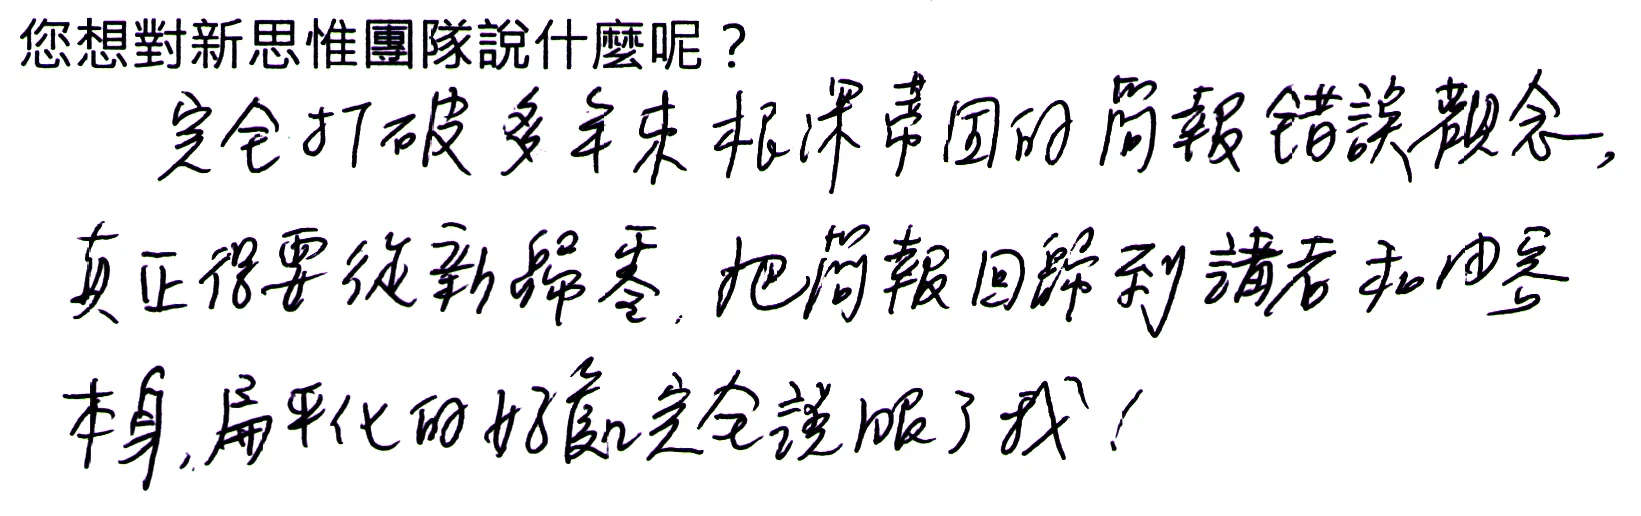 您想對新思惟團隊說什麼呢？
完全打破多年來根深蒂固的簡報錯誤觀念,
真正得要從新歸零,把簡報回歸到講者和內容
本身,扁平化的好處完全說服了我!